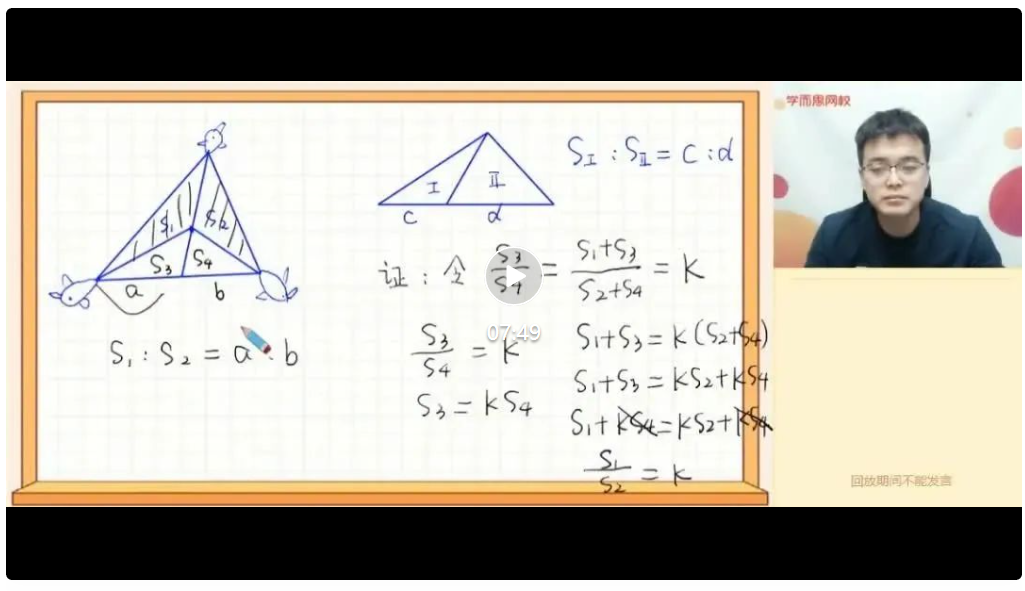 学而思网校
S₁ S₂
S₃ S₄
a b
S₁ : S₂ = a : b
I II
c d
S_I : S_II = c : d
证：令 S₃/S₄ = (S₁+S₃)/(S₂+S₄) = K
07:49
S₃/S₄ = K
S₃ = KS₄
S₁+S₃ = K(S₂+S₄)
S₁+S₃ = KS₂+KS₄
S₁+KS₄ = KS₂+KS₄
S₁/S₂ = K
回放期间不能发言